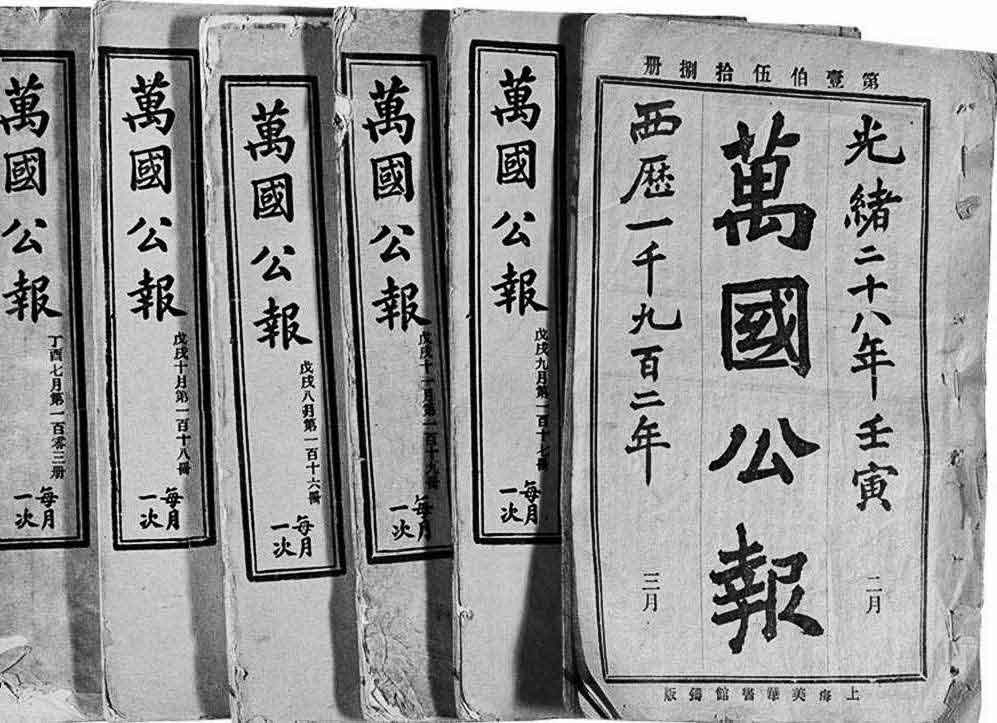 第壹伯伍拾捌册
光緒二十八年壬寅
二月
萬國公報
西歷一千九百二年
三月
上海美華書館鑄版
萬國公報
戊戌九月第一百十七冊
每月
一次
萬國公報
戊戌十一月第一百十九冊
每月
一次
萬國公報
戊戌八月第一百十六冊
每月
一次
萬國公報
戊戌十月第一百十八冊
每月
一次
萬國公報
丁酉七月第一百零三册
每月
一次